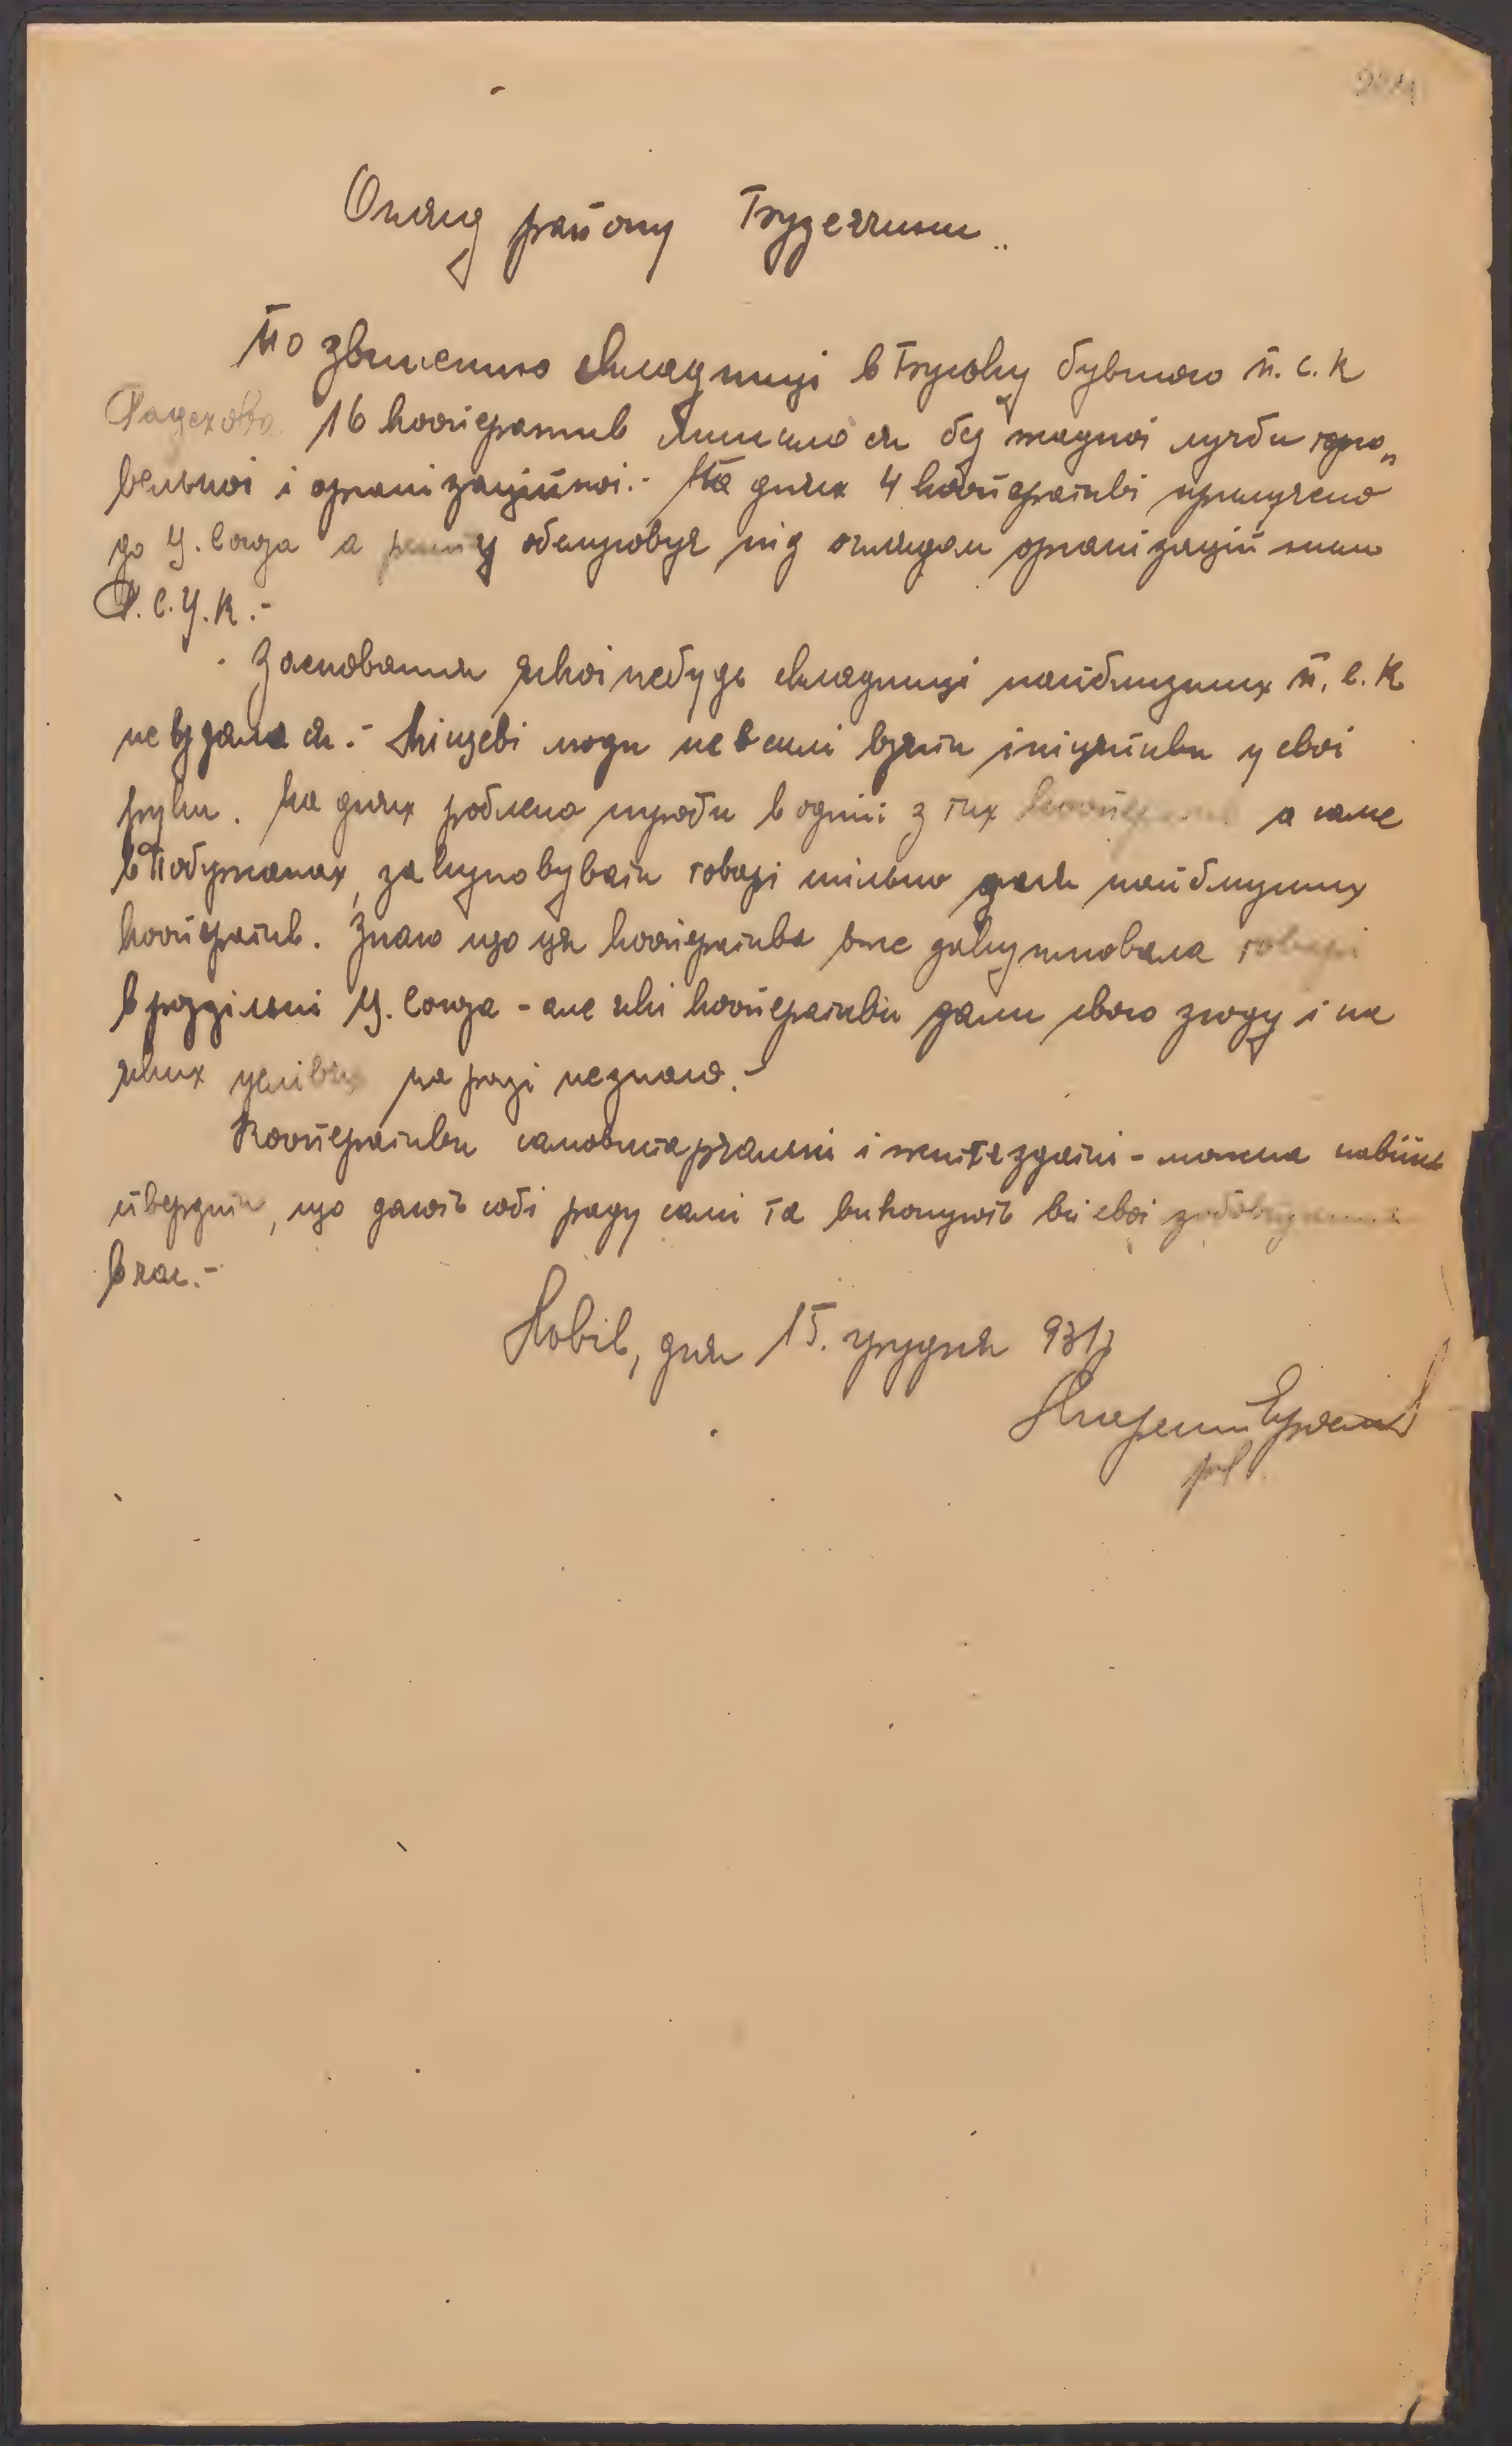 Огляд району Грубешин..
По звиненню складниці в Турівку бувшого П. С. К
Радехова 16 кооператив лишило ся без жадної лучби торго„
вельної і організаційної.- На днях 4 кооперативі прилучено
до Ц. Союза а решту обслуговує під оглядом організаційним
Р.С.У.К.-
Засновання якоїнебудь складниці найблизших П. С. К
не вдалося.- Місцеві люди не в силі взяти ініціятиви у свої
руки. На днях роблено проби в одній з тих кооператив а саме
в Побужанах, закуповувати товарі спільно для найблизших
кооператив. Знаю що ця кооператива вже закуплювала товарі
в розділені Ц. Союза - але які кооперативи дали свою згоду і на
яких услівях на разі незнаю.-
Кооперативи самовистарчальні і життездатні - можна навіть
твердити, що дають собі раду самі та виконують всі свої зобовязання
в час.-
Львів, дня 15. грудня 931р